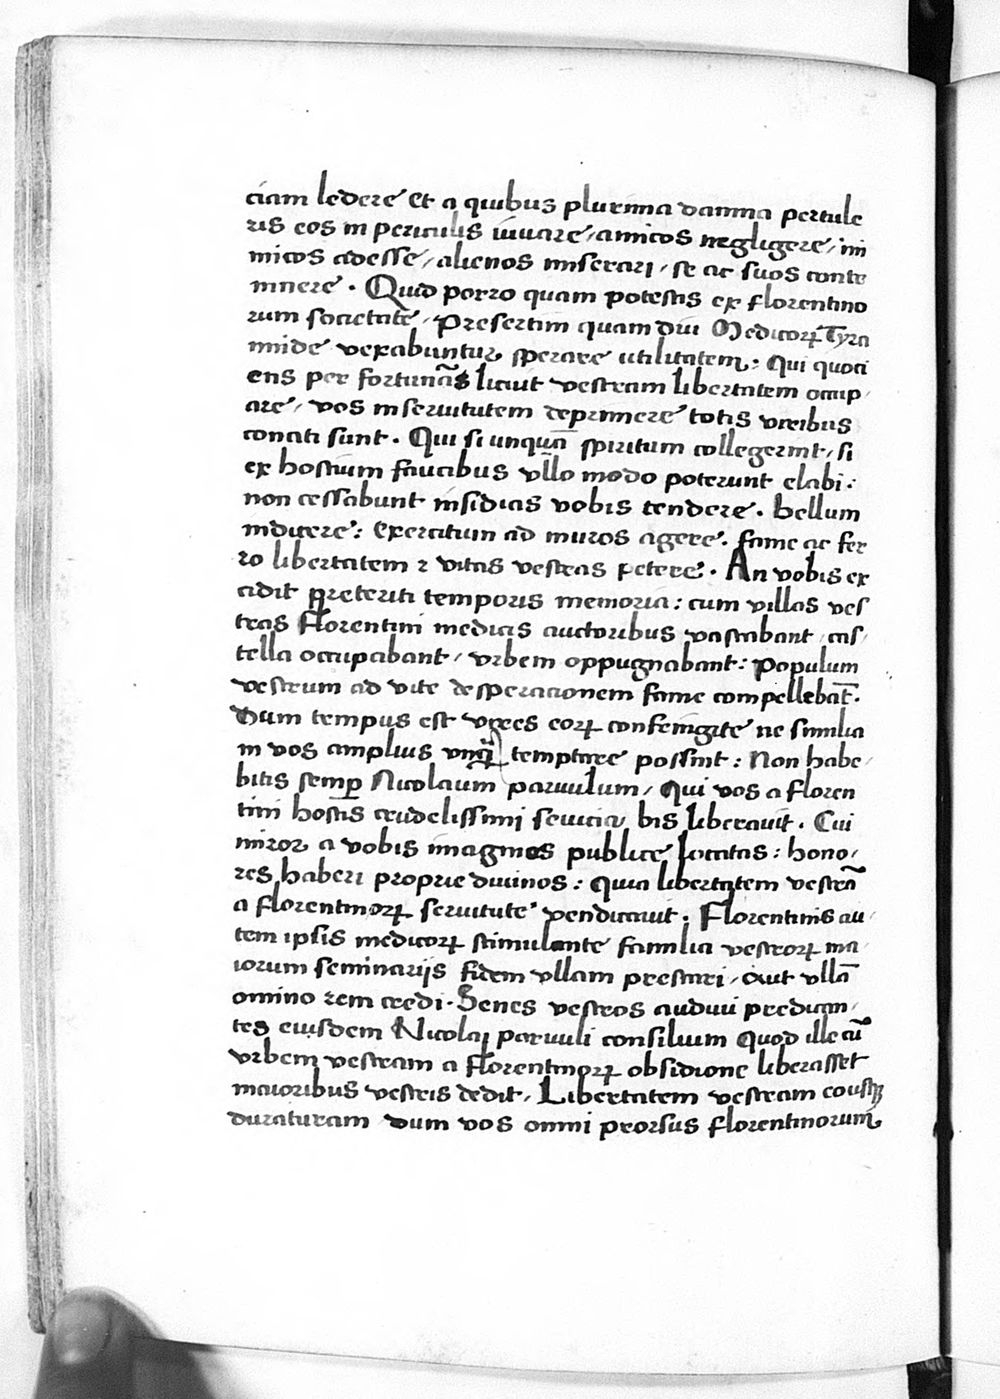 ciam ledere et a quibus plurima damna pertule
ris eos in periculis iuuare, amicos negligere, ini
micos adesse, alienos miserari, se ac suos conte
mnere. Quid porro quam potestis ex florentino
rum societate, Presertim quam diu Medicorꝝ Tyra
mnide vexabuntur sperare utilitatem: Qui quoti
ens per fortunãs licuit vestram libertatem occup,
are, vos in seruitutem deprimere totis viribus
conati sunt. Qui si unquã spiritum collegerint, si
ex hostium faucibus vllo modo poterunt elabi:
non cessabunt insidias vobis tendere. bellum
indicere: exercitum ad muros agere. fame ac fer
ro libertatem ⁊ vitas vestras petere. An vobis ex
cidit preteriti temporis memoria: cum villas ves
tras florentini medicis auctoribus vastabant, cas,
tella occupabant, vrbem oppugnabant: Populum
vestrum ad vite desperacionem fame compellebãt.
Dum tempus est vires eorꝝ confringite ne similia
in vos amplius vnq̃ temptare possint: Non habe,
bitis semꝑ Nicolaum paruulum, Qui vos a floren
tini hostis crudelissimi seuicia bis liberauit. Cui
miror a vobis imagines publice locatas: hono,
res haberi proprie diuinos: Quia libertatem vestrã
a florentinorꝝ seruitute vendicauit. Florentinis au,
tem ipsis medicorꝝ stimulante familia vestrorꝝ ma,
iorum seminarijs fidem vllam prestari, aut vllã
omino rem credi. Senes vestros audiui predican,
tes eiusdem Nicolaj paruuli consilium Quod ille cũ
vrbem vestram a florentinorꝝ obsidione liberasset
maioribus vestris dedit, Libertatem vestram eousqꝫ
duraturam dum vos omni prorsus florentinorum